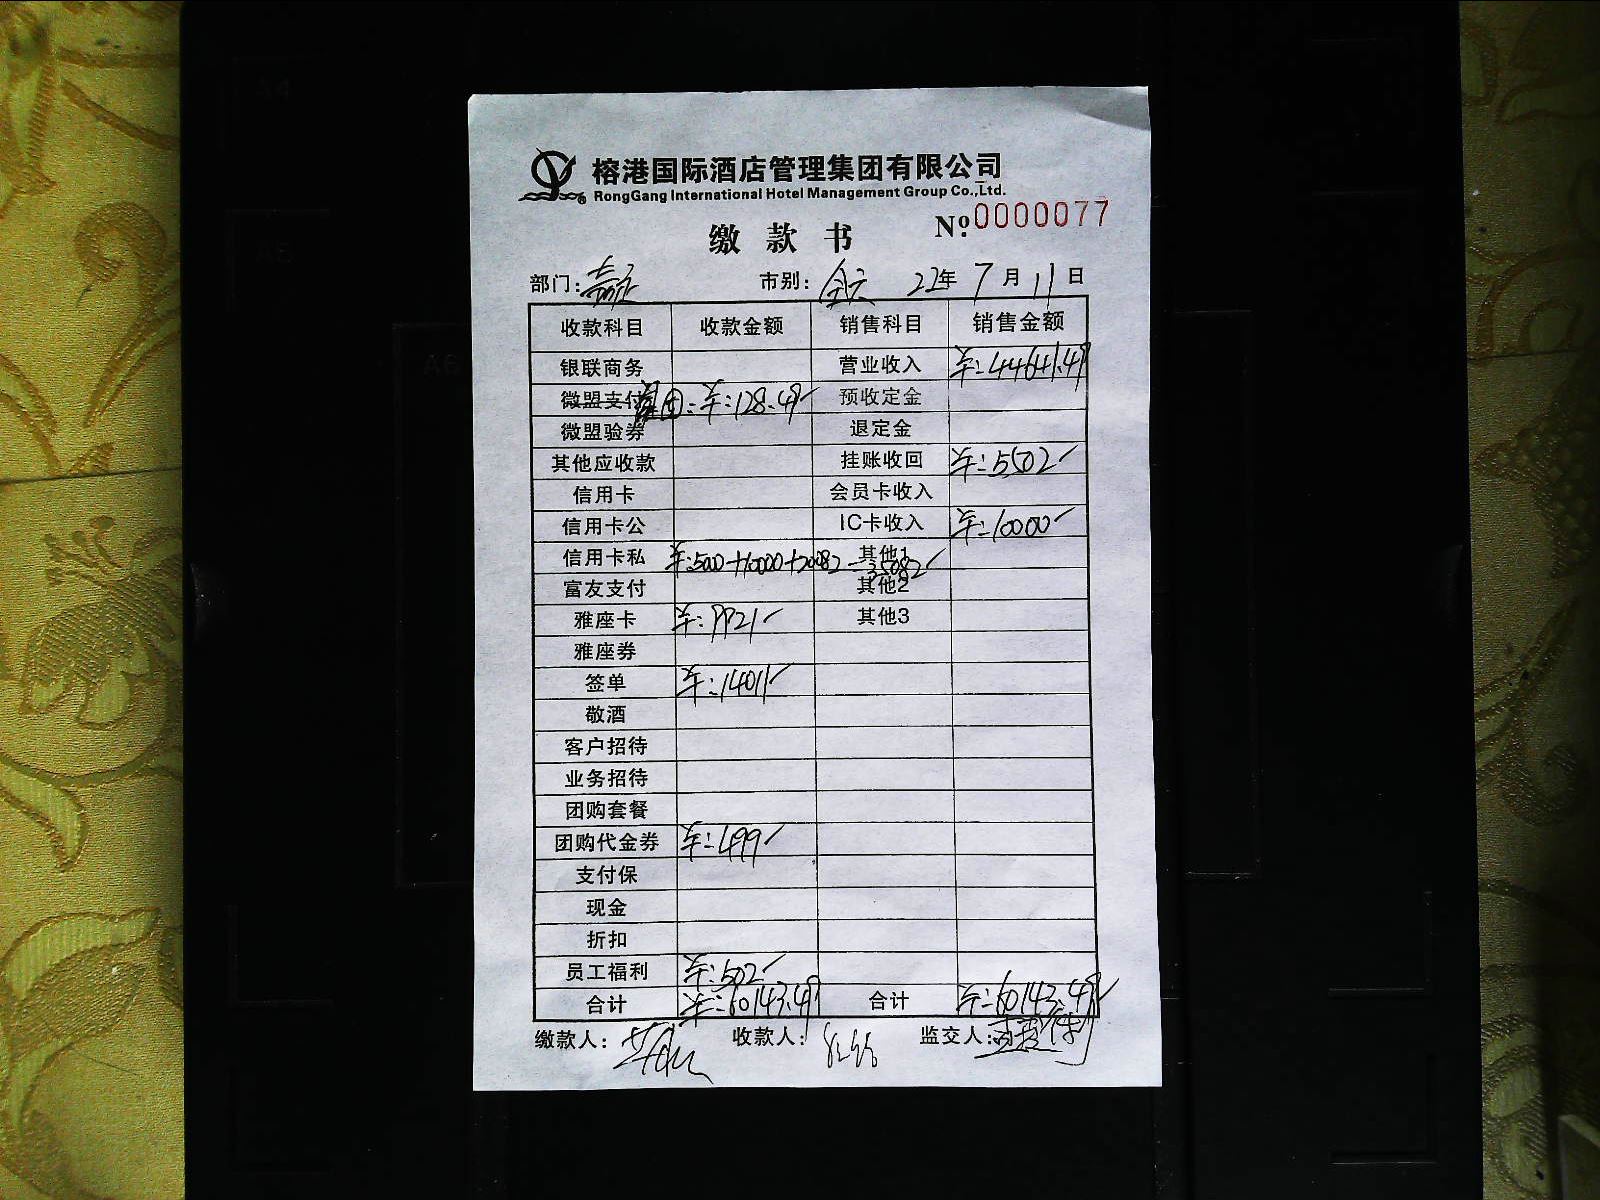 榕港国际酒店管理集团有限公司
RongGang International Hotel Management Group Co.,Ltd.
缴款书 Nº:0000077
部门: 市别:全天 22年7月11日
收款科目 收款金额 销售科目 销售金额
银联商务 营业收入 ¥:44641.49
微盟支付 美团:¥:128.49 预收定金
微盟验券 退定金
其他应收款 挂账收回 ¥:5502
信用卡 会员卡收入
信用卡公 IC卡收入 ¥:10000
信用卡私 ¥:5000+10000+20082=35082 其他1
富友支付 其他2
雅座卡 ¥:9921 其他3
雅座券
签单 ¥:14011
敬酒
客户招待
业务招待
团购套餐
团购代金券 ¥:499
支付保
现金
折扣
员工福利 ¥:502
合计 ¥:60143.49 合计 ¥:60143.49
缴款人: 收款人: 监交人: